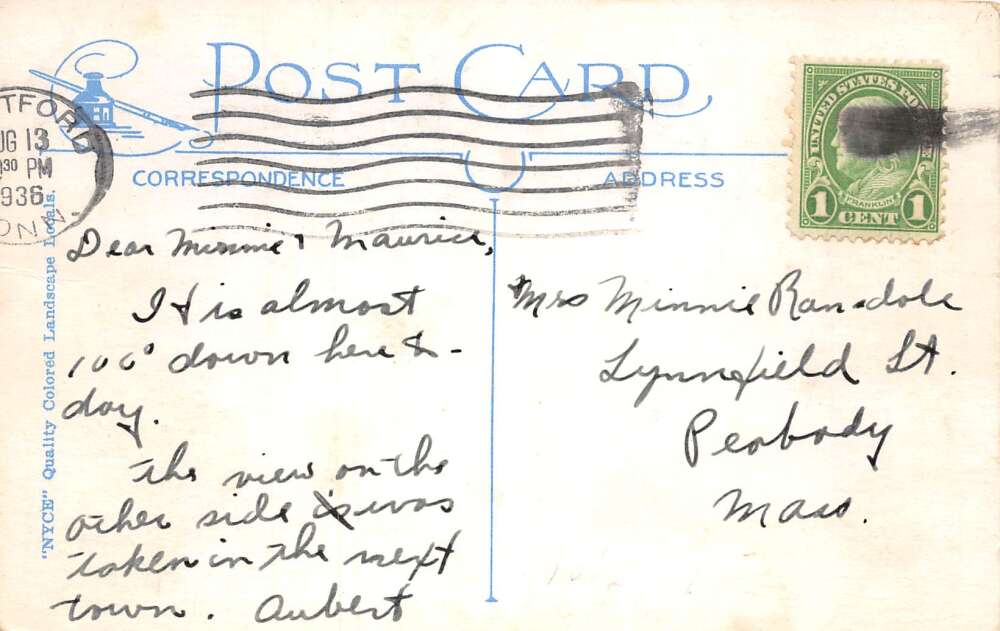 POST CARD
TFORD
UG 13
30 PM
1936
CONN.
UNITED STATES PO
FRANKLIN
1 CENT 1
CORRESPONDENCE
ADDRESS
"NYCE" Quality Colored Landscape Locals.
Dear Minnie & Maurice,
It is almost
100° down here to-
day.
The view on the
other side is was
taken in the next
town. Aubert
Mrs Minnie Ransdole
Lynnfield St.
Peabody
Mass.